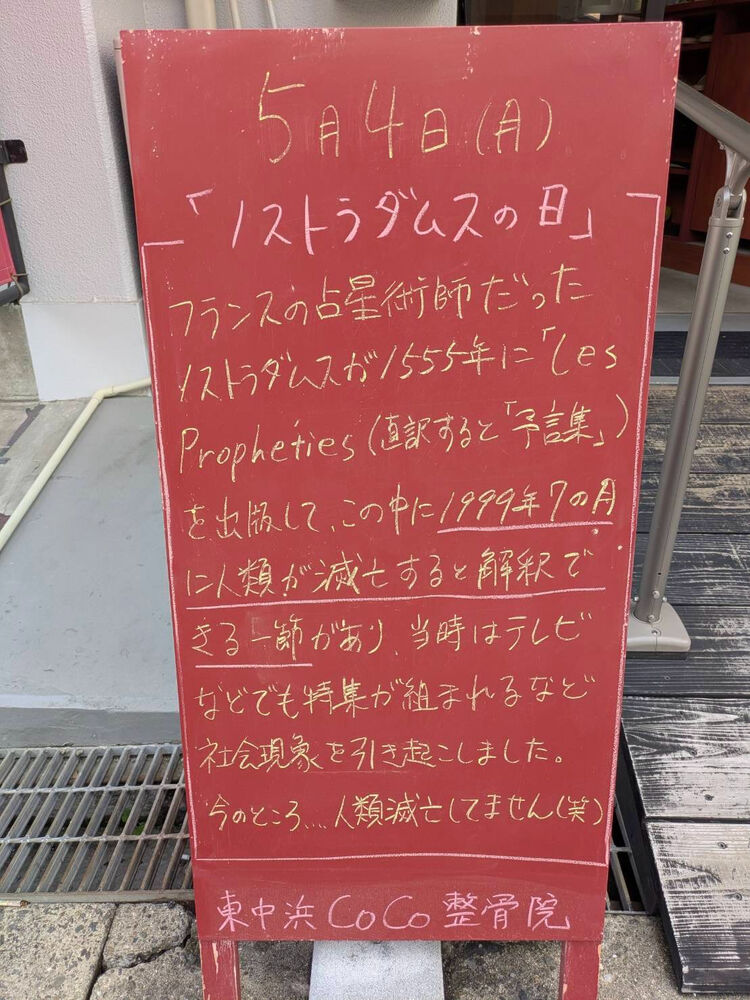 5月4日(月)
「ノストラダムスの日」
フランスの占星術師だった
ノストラダムスが1555年に「Les
Propheties(直訳すると「予言集」)
を出版して、この中に1999年7の月
に人類が滅亡すると解釈で
きる一節があり、当時はテレビ
などでも特集が組まれるなど
社会現象を引き起こしました。
今のところ...人類滅亡してません(笑)
東中浜CoCo整骨院